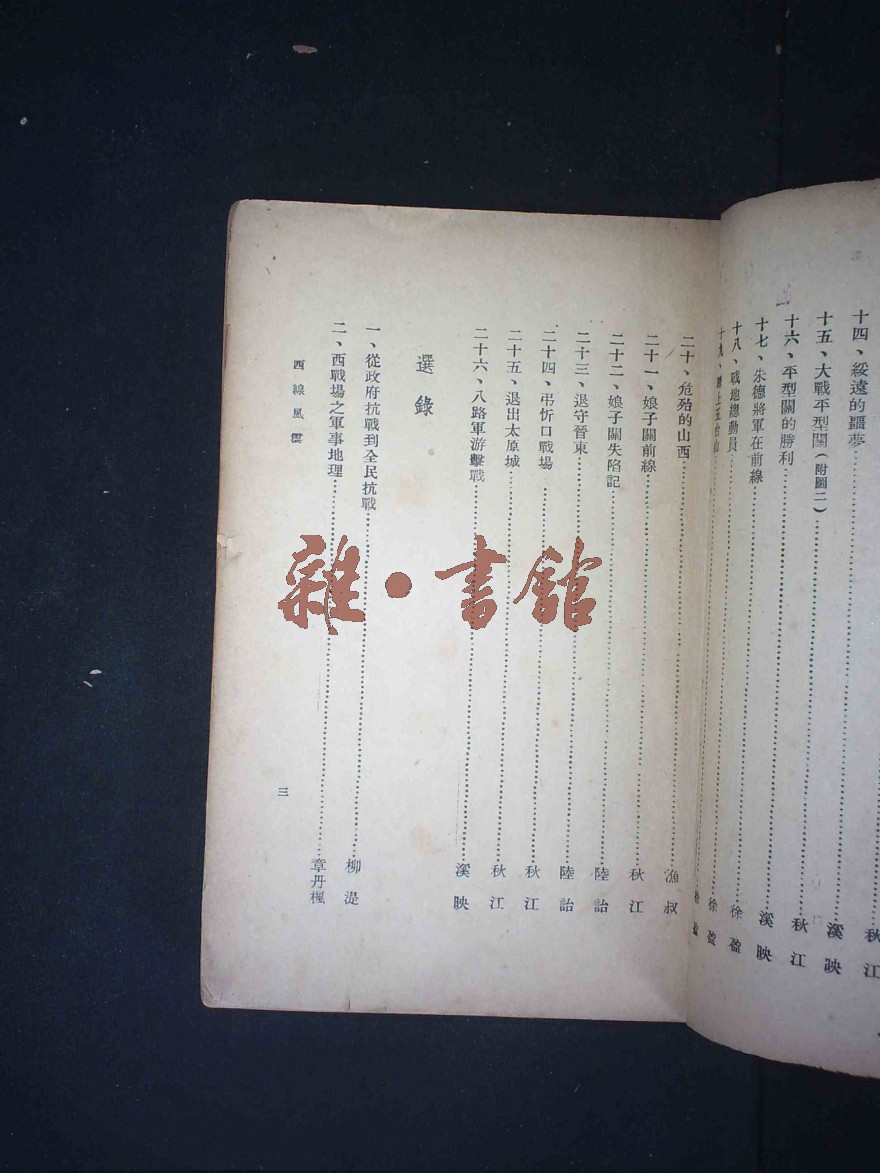 十四、綏遠的噩夢 秋江
十五、大戰平型關（附圖二） 溪映
十六、平型關的勝利 秋江
十七、朱德將軍在前線 溪映
十八、戰地總動員 徐盈
十九、上五台山 徐盈
二十、危殆的山西 漁叔
二十一、娘子關前線 秋江
二十二、娘子關失陷記 陸詒
二十三、退守晉東 陸詒
二十四、弔忻口戰場 秋江
二十五、退出太原城 秋江
二十六、八路軍游擊戰 溪映
選錄
一、從政府抗戰到全民抗戰 柳湜
二、西戰場之軍事地理 章丹楓
西線風雲
三
雜·書館